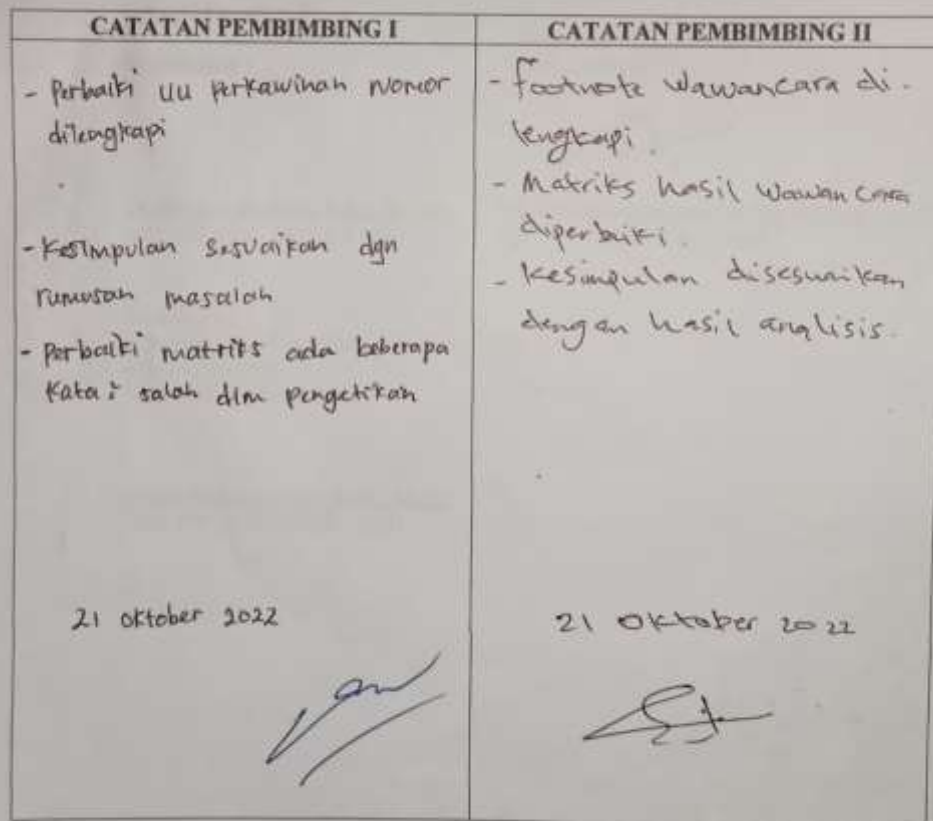 CATATAN PEMBIMBING I
- Perbaiki UU Perkawinan Nomor
dilengkapi
- Kesimpulan Sesuaikan dgn
rumusan masalah
- Perbaiki matriks ada beberapa
Kata² salah dlm Pengetikan
21 Oktober 2022
CATATAN PEMBIMBING II
- Footnote Wawancara di-
lengkapi.
- Matriks hasil Wawancara
diperbaiki.
- Kesimpulan disesuaikan
dengan hasil analisis.
21 Oktober 2022